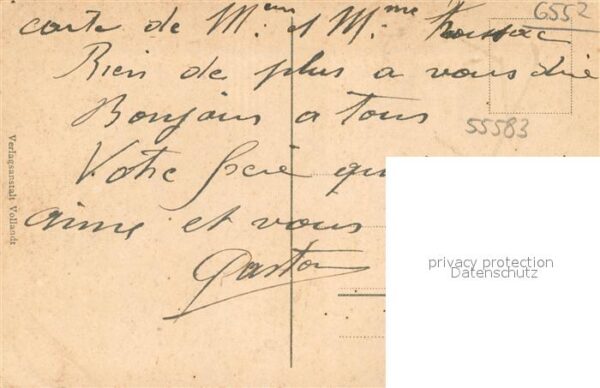 6552
carte de Meur et Mme
Rien de plus a vous dire
Bonjours a tous
55583
Votre frère qui
aime et vous
Gaston
Verlagsanstalt Vollandt
privacy protection
Datenschutz